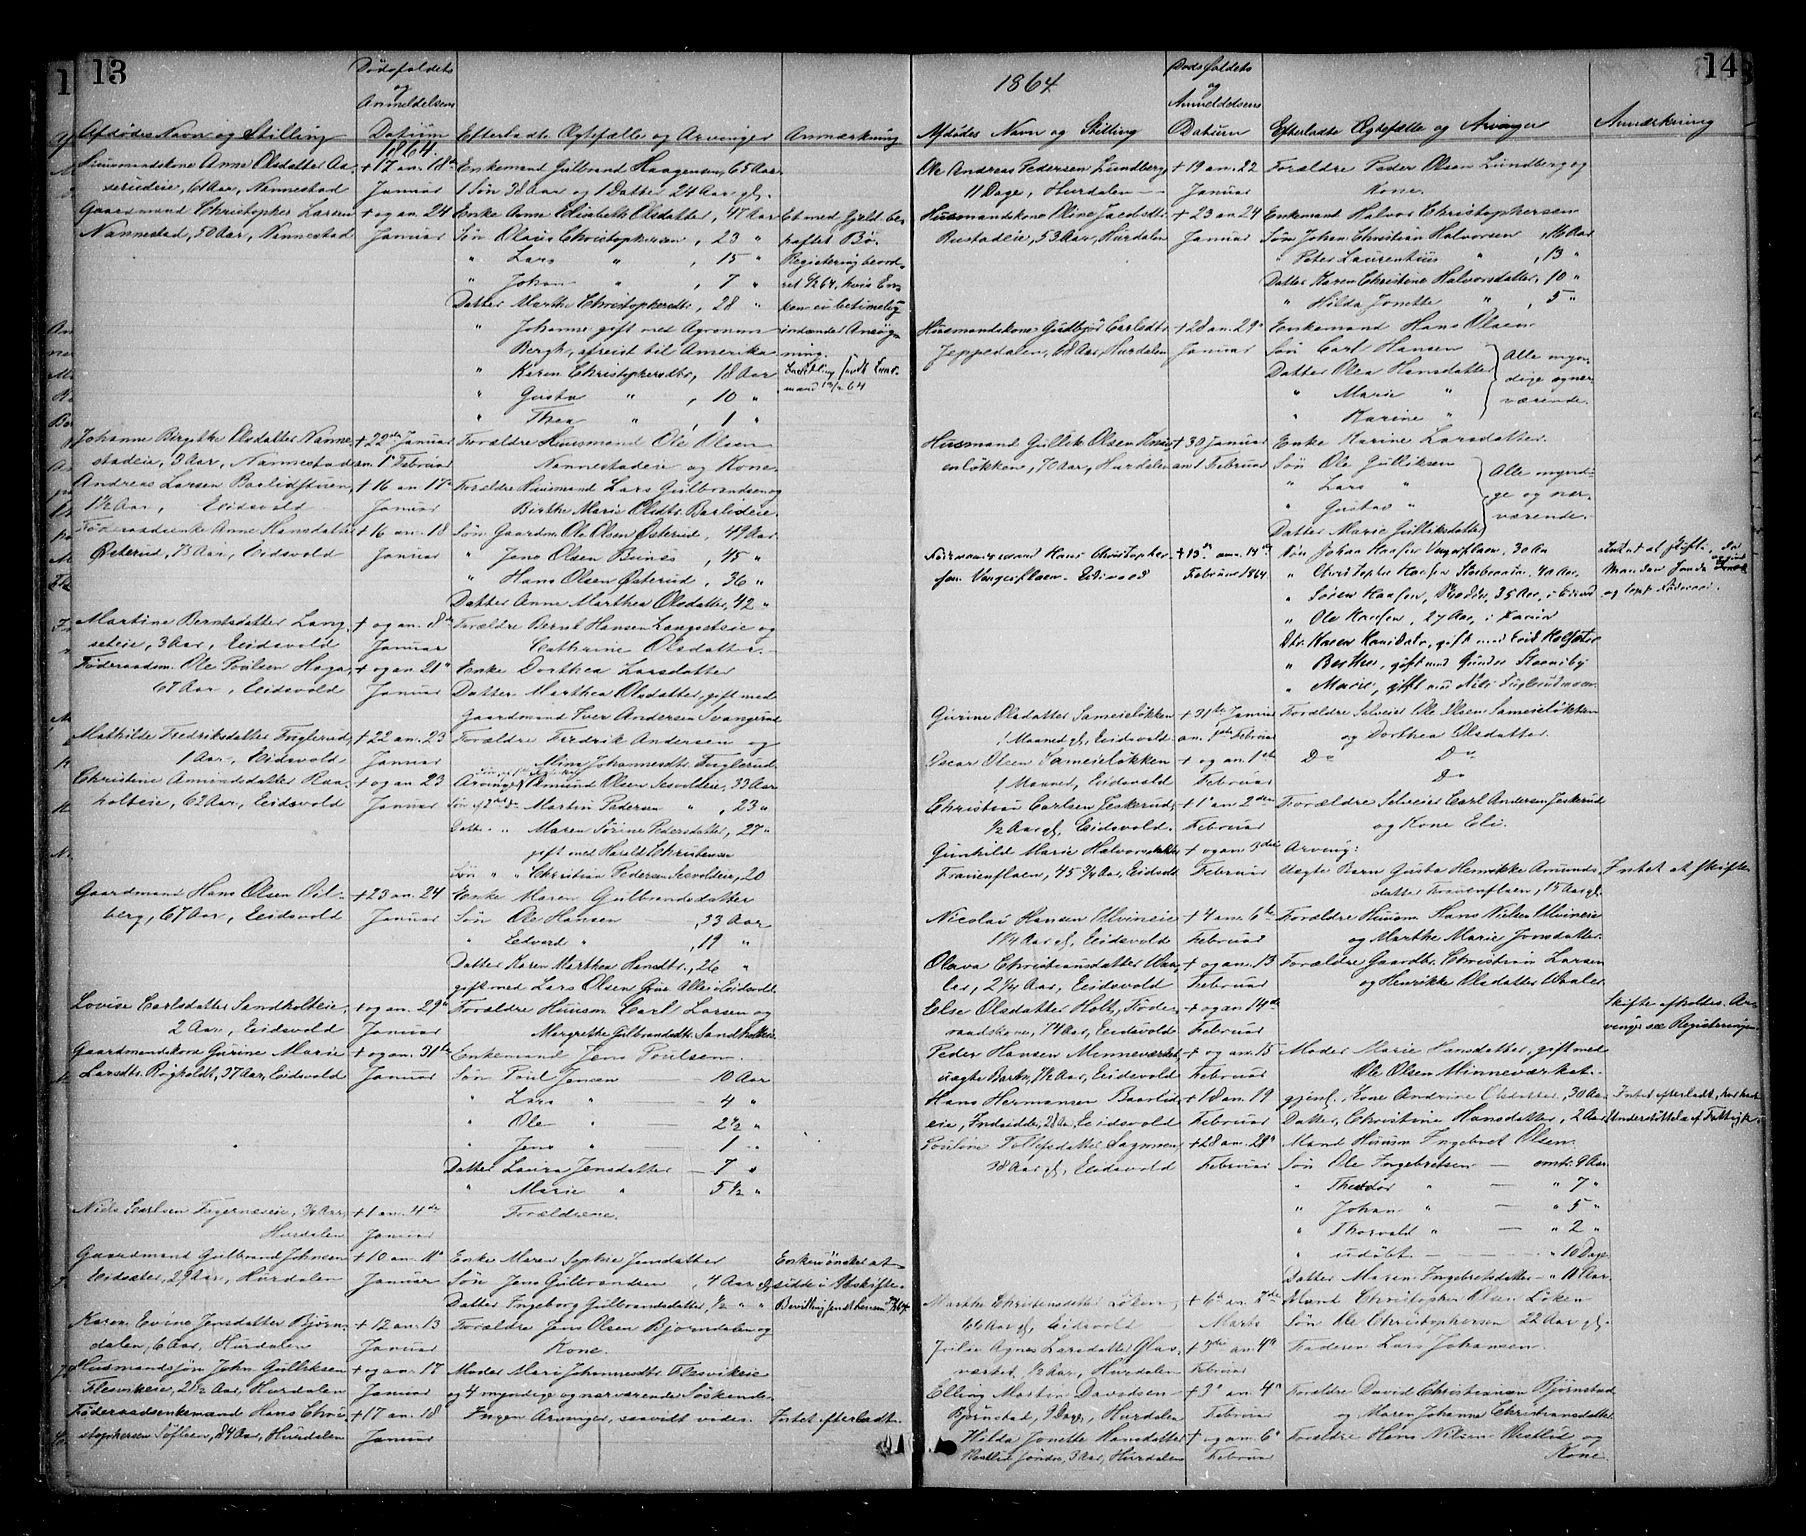 13
Dødsfaldets
og
Anmeldelsens
Afdødes Navn og Stilling
Datum
Efterladte Ægtefælle og Arvinger
Anmærkning
1864.
Huusmandskone Anne Olsdatter Aa-
serudeie, 61 Aar, Nannestad
+ 17 an. 18de
Januar
Enkemand Gulbrand Haagensen, 65 Aar.
1 Søn 38 Aar og 1 Datter 24 Aar gl.
Gaardmand Christopher Larsen
Nannestad, 50 Aar, Nannestad
+ og an. 24
Januar
Enke Anne Elisabeth Olsdatter, 47 Aar
Søn Olaus Christophersen, 23 "
" Lars " , 15 "
" Johan " , 7 "
Datter Marthe Christophersdtr, 28 "
" Johanne gift med Agronom
Bergh, afreist til Amerika
" Karen Christophersdtr, 18 Aar
" Gusta " , 10 "
" Thea " , 1 "
Et med Gjeld be-
hæftet Bo.
Registering beord-
ret 5/2 64, hvis En-
ken ei betimelig
indsender Ansøg-
ning.
Johanne Birgithe Olsdatter Nanne-
stadeie, 3 Aar, Nannestad
+ 22de Januar
an. 1 Februar
Forældre Huusmand Ole Olsen
Nannestadeie og Kone.
Andreas Larsen Baarlidstuen,
1 1/2 Aar, Eidsvold
+ 16 an 17de
Januar
Forældre Huusmand Lars Gulbrandsen og
Birthe Marie Olsdtr. Barlideie.
Føderaadsenke Anne Hansdatter
Østerud, 73 Aar, Eidsvold
+ 16 an. 18
Januar
Søn Gaardm. Ole Olsen Østerud, 49 Aar
" Jens Olsen , 45 "
" Hans Olsen Østerud, 36 "
Datter Anne Marthea Olsdatter, 42 "
Martine Berntsdatter Lang-
seteie, 3 Aar, Eidsvold
+ og an. 8de
Januar
Forældre Bernt Hansen Langseteie og
Cathrine Olsdatter.
Føderaadsm. Ole Poulsen Haga,
67 Aar, Eidsvold
+ og an 21
Januar
Enke Dorthea Larsdatter
Datter Marthea Olsdatter, gift med
Gaardmand Iver Andersen Svangerud
Mathilde Fredriksdatter Fuglerud,
1 Aar, Eidsvold
+ 22 an. 23
Januar
Forældre Fredrik Andersen og
Mina Johannesdtr. Fuglerud.
Christine Amundsdatter Raa-
holteie, 62 Aar, Eidsvold
+ og an 23
Januar
Arvinger Amund Olsen , 33 Aar
Martin Pedersen " , 23 "
Maren Sørine Pedersdatter, 27 "
gift med Harald Christensen
Søn " " Christian Pedersen , 20
Gaardmand Hans Olsen Vil-
berg, 67 Aar, Eidsvold
+ 23 an. 24
Januar
Enke Maren Gulbrandsdatter
Søn Ole Hansen , 33 Aar
" Edvard " , 19 "
Datter Karen Marthea Hansdtr., 26 "
gift med Lars Olsen Alle i Eidsvold
Lovise Carlsdatter Sandholteie,
2 Aar, Eidsvold
+ og an. 29de
Januar
Forældre Huusm. Carl Larsen og
Margrethe Gulbrandsdtr. Sandholteie.
Gaardmandskone Gurine Marie
Larsdtr. Røgholdt, 37 Aar, Eidsvold
+ og an. 31te
Januar
Enkemand Jens Poulsen.
Søn Poul Jensen — 10 Aar
" Lars " — 4 "
" Ole " — 2 1/2 "
" Jens " — 1 "
Datter Laura Jensdatter — 7 "
" Marie " 5 1/2 "
Niels Carlsen Fugernæseie, Aar,
Hurdalen
+ 1 an. 4de
Januar
Forældrene.
Gaardmand Gulbrand Johnsen
Eidsæter, 29 Aar, Hurdalen
+ 10 an. 11
Januar
Enke Maren Sophie Jensdatter
Søn Jens Gulbrandsen , 4 Aar gl.
Datter Ingeborg Gulbrandsdatter, 1/2 " "
Enken ønsker at
sidde i Uskifte.
Karen Evine Jensdatter Bjørn-
dalen, 6 Aar, Hurdalen
+ 12 an. 13
Januar
Forældre Jens Olsen Bjørndalen og
Kone.
Husmandssøn John Gulliksen
Flesvikeie, 21 1/2 Aar, Hurdalen
+ og an 17
Januar
Moder Mari Johannesdtr. Flesvikeie
og 4 myndige og nærværende Søskende.
Føderaadsenkemand Hans Chri-
stophersen , 84 Aar, Hurdalen
+ 17 an. 18
Januar
Ingen Arvinger, saavidt vides.
Intet efterladt.
1864
14
Dødsfaldets
og
Anmeldelsens
Afdødes Navn og Stilling
Datum
Efterladte Ægtefælle og Arvinger
Anmærkning
Ole Andreas Pedersen Lundberg,
11 Dage, Hurdalen
+ 19 an. 22
Januar
Forældre Peder Olsen Lundberg og
Kone.
Husmandskone Oline Jacobsdtr.
Rustadeie, 53 Aar, Hurdalen
+ 23 an 24
Januar
Enkemand Halvor Christophersen
Søn Johan Christian Halvorsen , 16 Aar
" Peter Laurentius " , 13 "
Datter Karen Christine Halvorsdatter, 10 "
" Hilda Jonette " , 5 "
Husmandskone Gudbjør Carlsdtr.
Jeppedalen, 68 Aar, Hurdalen
+ 28 an. 29
Januar
Enkemand Hans Olsen
Søn Carl Hansen
Datter Olea Hansdatter
" Marie "
" Karine "
Alle myn-
dige og nær-
værende.
Husmand Gullik Olsen
løkkene, 70 Aar, Hurdalen
+ 30 Januar
an 1 Februar
Enke Karine Larsdatter.
Søn Ole Gulliksen
" Lars "
" Gustav "
Datter Marie Gulliksdatter
Alle myndi-
ge og nær-
værende.
Hans Christopher-
sen Vangerflaen. Eidsvold
+ 13de anm. 14de
Februar 1864
Søn Johan Hansen Vangerflaen, 30 Aar
" Christopher Hansen , 40 Aar,
" Søren Hansen, , 35 Aar, i Eidsvold
" Ole Hansen, 27 Aar, i
Dtr. Karen Hansdatr, gift med
" Berthe, gift med Gunder
" Marie, gift med Nils
Intet at skifte.
Gurine Olsdatter Sameieløkken
1 Maaned gl, Eidsvold
+ 31te Januar
an. 1ste Februar
Forældre Selveier Ole Olsen Sameieløkken
og Dorthea Olsdatter.
Oscar Olsen Sameieløkken
1 Maaned, Eidsvold
+ og an. 1ste
Februar
Do Do
Do
Christian Carlsen Jeskerud,
1/2 Aar gl, Eidsvold.
+ 1 an 2den
Februar
Forældre Selveier Carl Andersen Jeskerud
og Kone Eli.
Gunhild Marie Halvorsdatter
Tranenflaen, 45 3/4 Aar, Eidsvold
+ og an 3die
Februar
Arving:
Uægte Barn Gusta Henrikke Amunds-
datter Tranenflaen, 15 Aar gl.
Intet at skifte
Nicolai Hansen Ulvineie
1 1/4 Aar gl, Eidsvold
+ 4 an. 6te
Februar
Forældre Huusm. Hans Nielsen Ulvineie
og Marthe Marie Jonsdatter.
Olava Christiansdatter Waa-
ler, 2 1/4 Aar, Eidsvold
+ og an. 13
Februar
Forældre Gaardbr. Christian Larsen
og Henrikke Olsdatter Waaler.
Else Olsdatter Holt, Føde-
raadskone, 74 Aar, Eidsvold
+ og an 14de
Februar
Skifte afholdes. Ar-
vinge see Registeringen.
Peder Hansen Minneværket,
uægte Barn, 7 1/2 Aar, Eidsvold
+ og an. 15
Februar
Moder Marie Hansdatter, gift med
Ole Olsen Minneværket.
Hans Hermansen Baarlid-
eie, Inderst, 28 Aar, Eidsvold
+ 18 an. 19
Februar
gjenl. Kone Andrine Olsdatter, 30 Aar
Datter, Christine Hansdatter, 2 Aar
Intet efterladt, har havt
Understøttelse af Fattigk.
Tollefsdatter Sagmoen,
38 Aar gl, Eidsvold
+ 28 an. 28
Februar
Mand Huusm Ingebret Olsen.
Søn Ole Ingebretsen — omtr. 9 Aar.
" Theodor " — " 7 "
" Johan " — " 5 "
" Thorvald " — " 2 "
" udøbt — " 10 Dage
Datter Maren Ingebretsdatter — " 11 Aar.
Marthe Christensdatter Løken,
66 Aar gl, Eidsvold
+ 6 an. 7de
Marts
Mand Christopher Olsen Løken
Søn Ole Christophersen 22 Aar gl.
Agnes Larsdatter Glas-
værket, 1/2 Aar, Hurdalen
+ 3die an. 4
Februar
Faderen Lars Johansen.
Elling Martin Davidsen
Bjørnstad, 9 Dage, Hurdalen
+ 3 an. 4
Februar
Forældre David Christiansen Bjørnstad
og Maren Johanne Christiansdatter
Hilda Jonette Hansdatter
Westlid Søndre, 3 Aar, Hurdalen
+ og an. 6
Februar
Forældre Hans Nilsen Westlid og
Kone